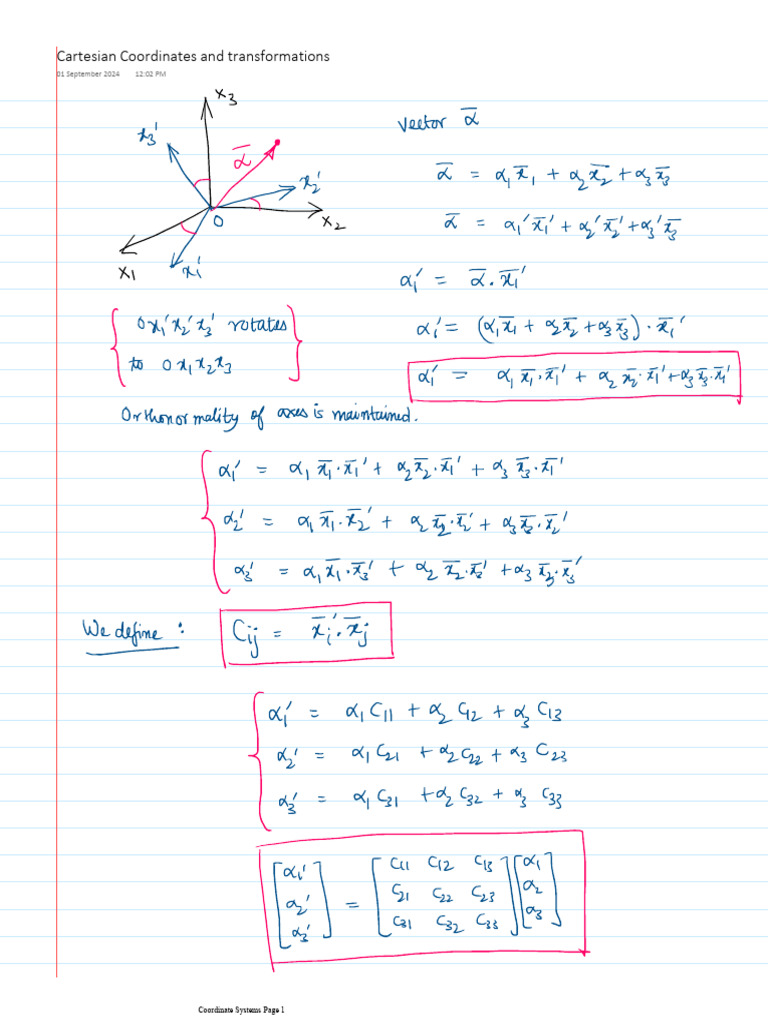 Cartesian Coordinates and transformations
01 September 2024 12:02 PM
x₃
x₃'
ᾱ
x₂'
O
x₂
x₁
x₁'
vector ᾱ
ᾱ = α₁x̄₁ + α₂x̄₂ + α₃x̄₃
ᾱ = α₁'x̄₁' + α₂'x̄₂' + α₃'x̄₃'
α₁' = ᾱ . x̄₁'
α₁' = (α₁x̄₁ + α₂x̄₂ + α₃x̄₃) . x̄₁'
α₁' = α₁ x̄₁ . x̄₁' + α₂ x̄₂ . x̄₁' + α₃ x̄₃ . x̄₁'
{ Ox₁'x₂'x₃' rotates
to Ox₁x₂x₃ }
Orthonormality of axes is maintained.
α₁' = α₁ x̄₁ . x̄₁' + α₂ x̄₂ . x̄₁' + α₃ x̄₃ . x̄₁'
α₂' = α₁ x̄₁ . x̄₂' + α₂ x̄₂ . x̄₂' + α₃ x̄₃ . x̄₂'
α₃' = α₁ x̄₁ . x̄₃' + α₂ x̄₂ . x̄₃' + α₃ x̄₃ . x̄₃'
We define : Cᵢⱼ = x̄ᵢ' . x̄ⱼ
α₁' = α₁ C₁₁ + α₂ C₁₂ + α₃ C₁₃
α₂' = α₁ C₂₁ + α₂ C₂₂ + α₃ C₂₃
α₃' = α₁ C₃₁ + α₂ C₃₂ + α₃ C₃₃
[α₁'] [C₁₁ C₁₂ C₁₃] [α₁]
[α₂'] = [C₂₁ C₂₂ C₂₃] [α₂]
[α₃'] [C₃₁ C₃₂ C₃₃] [α₃]
Coordinate Systems Page 1